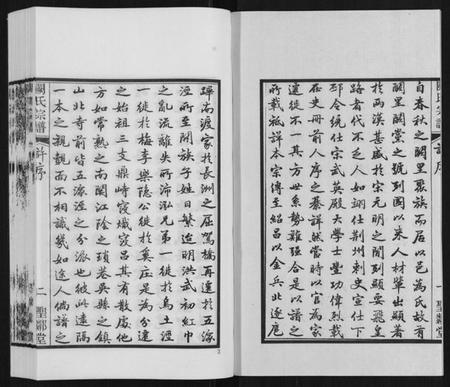 闕氏宗譜
譜序
一
聖鄰堂
自春秋之闕里聚族而居以邑為氏故有
闕里闕黨之號到國以来人材輩出顯著
於兩漢甚盛於宋元明之間到顯要飛皇
路者代不乏人如翊荆州刺史宣仕下
邳令統仕宗武英殿大學士豐功偉烈載
在史冊前人序之綦詳然當時以官為家
遷徙不一其方世系勢難强合是以譜之
所載祗詳本宗傳至紹呂以金兵北逐扈
蹕南渡家於長洲之屈駕橋再遷於五濠
涇所至開族子姓日繁迨明洪武初紅巾
之亂流離失所沛泓兄弟一徙於烏土涇
一徙於梅李樂隱公徙於奚庄是為分遷
之始祖三支鼎峙寢熾寢昌其有散處他
方如常熟之南闕江陰之璜港吳縣之鎮
山北寺前皆五濠涇之分派也彼此遠隔
一本之親親而不相識幾如途人倘譜之
闕氏宗譜
譜序
二
聖鄰堂